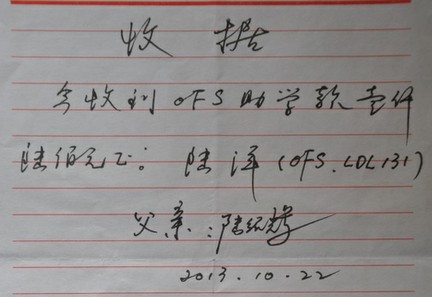 收据
今收到OFS助学款壹仟
陆佰元正: 陆洋(OFS.LDL131)
父亲:陆
2013.10.22